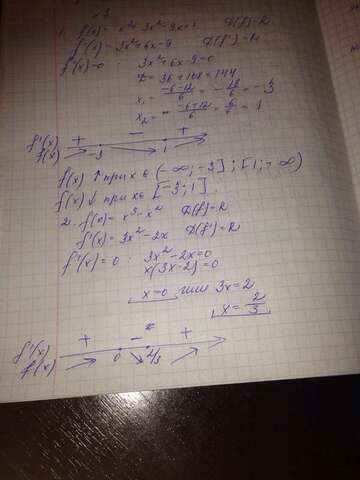 1. f(x) = x³ + 3x² - 9x + 1 D(f) = R
f'(x) = 3x² + 6x - 9 D(f') = R
f'(x) = 0 : 3x² + 6x - 9 = 0
D = 36 + 108 = 144
x₁ = (-6-12)/6 = -18/6 = -3
x₂ = (-6+12)/6 = 6/6 = 1
f'(x) + - +
f(x) -3 1
f(x) ↑ при x ∈ (-∞; -3] ; [1; ∞)
f(x) ↓ при x ∈ [-3; 1].
2. f(x) = x³ - x² D(f) = R
f'(x) = 3x² - 2x D(f') = R
f'(x) = 0 : 3x² - 2x = 0
x(3x - 2) = 0
x = 0 или 3x = 2
x = 2/3
f'(x) + - +
f(x) 0 2/3